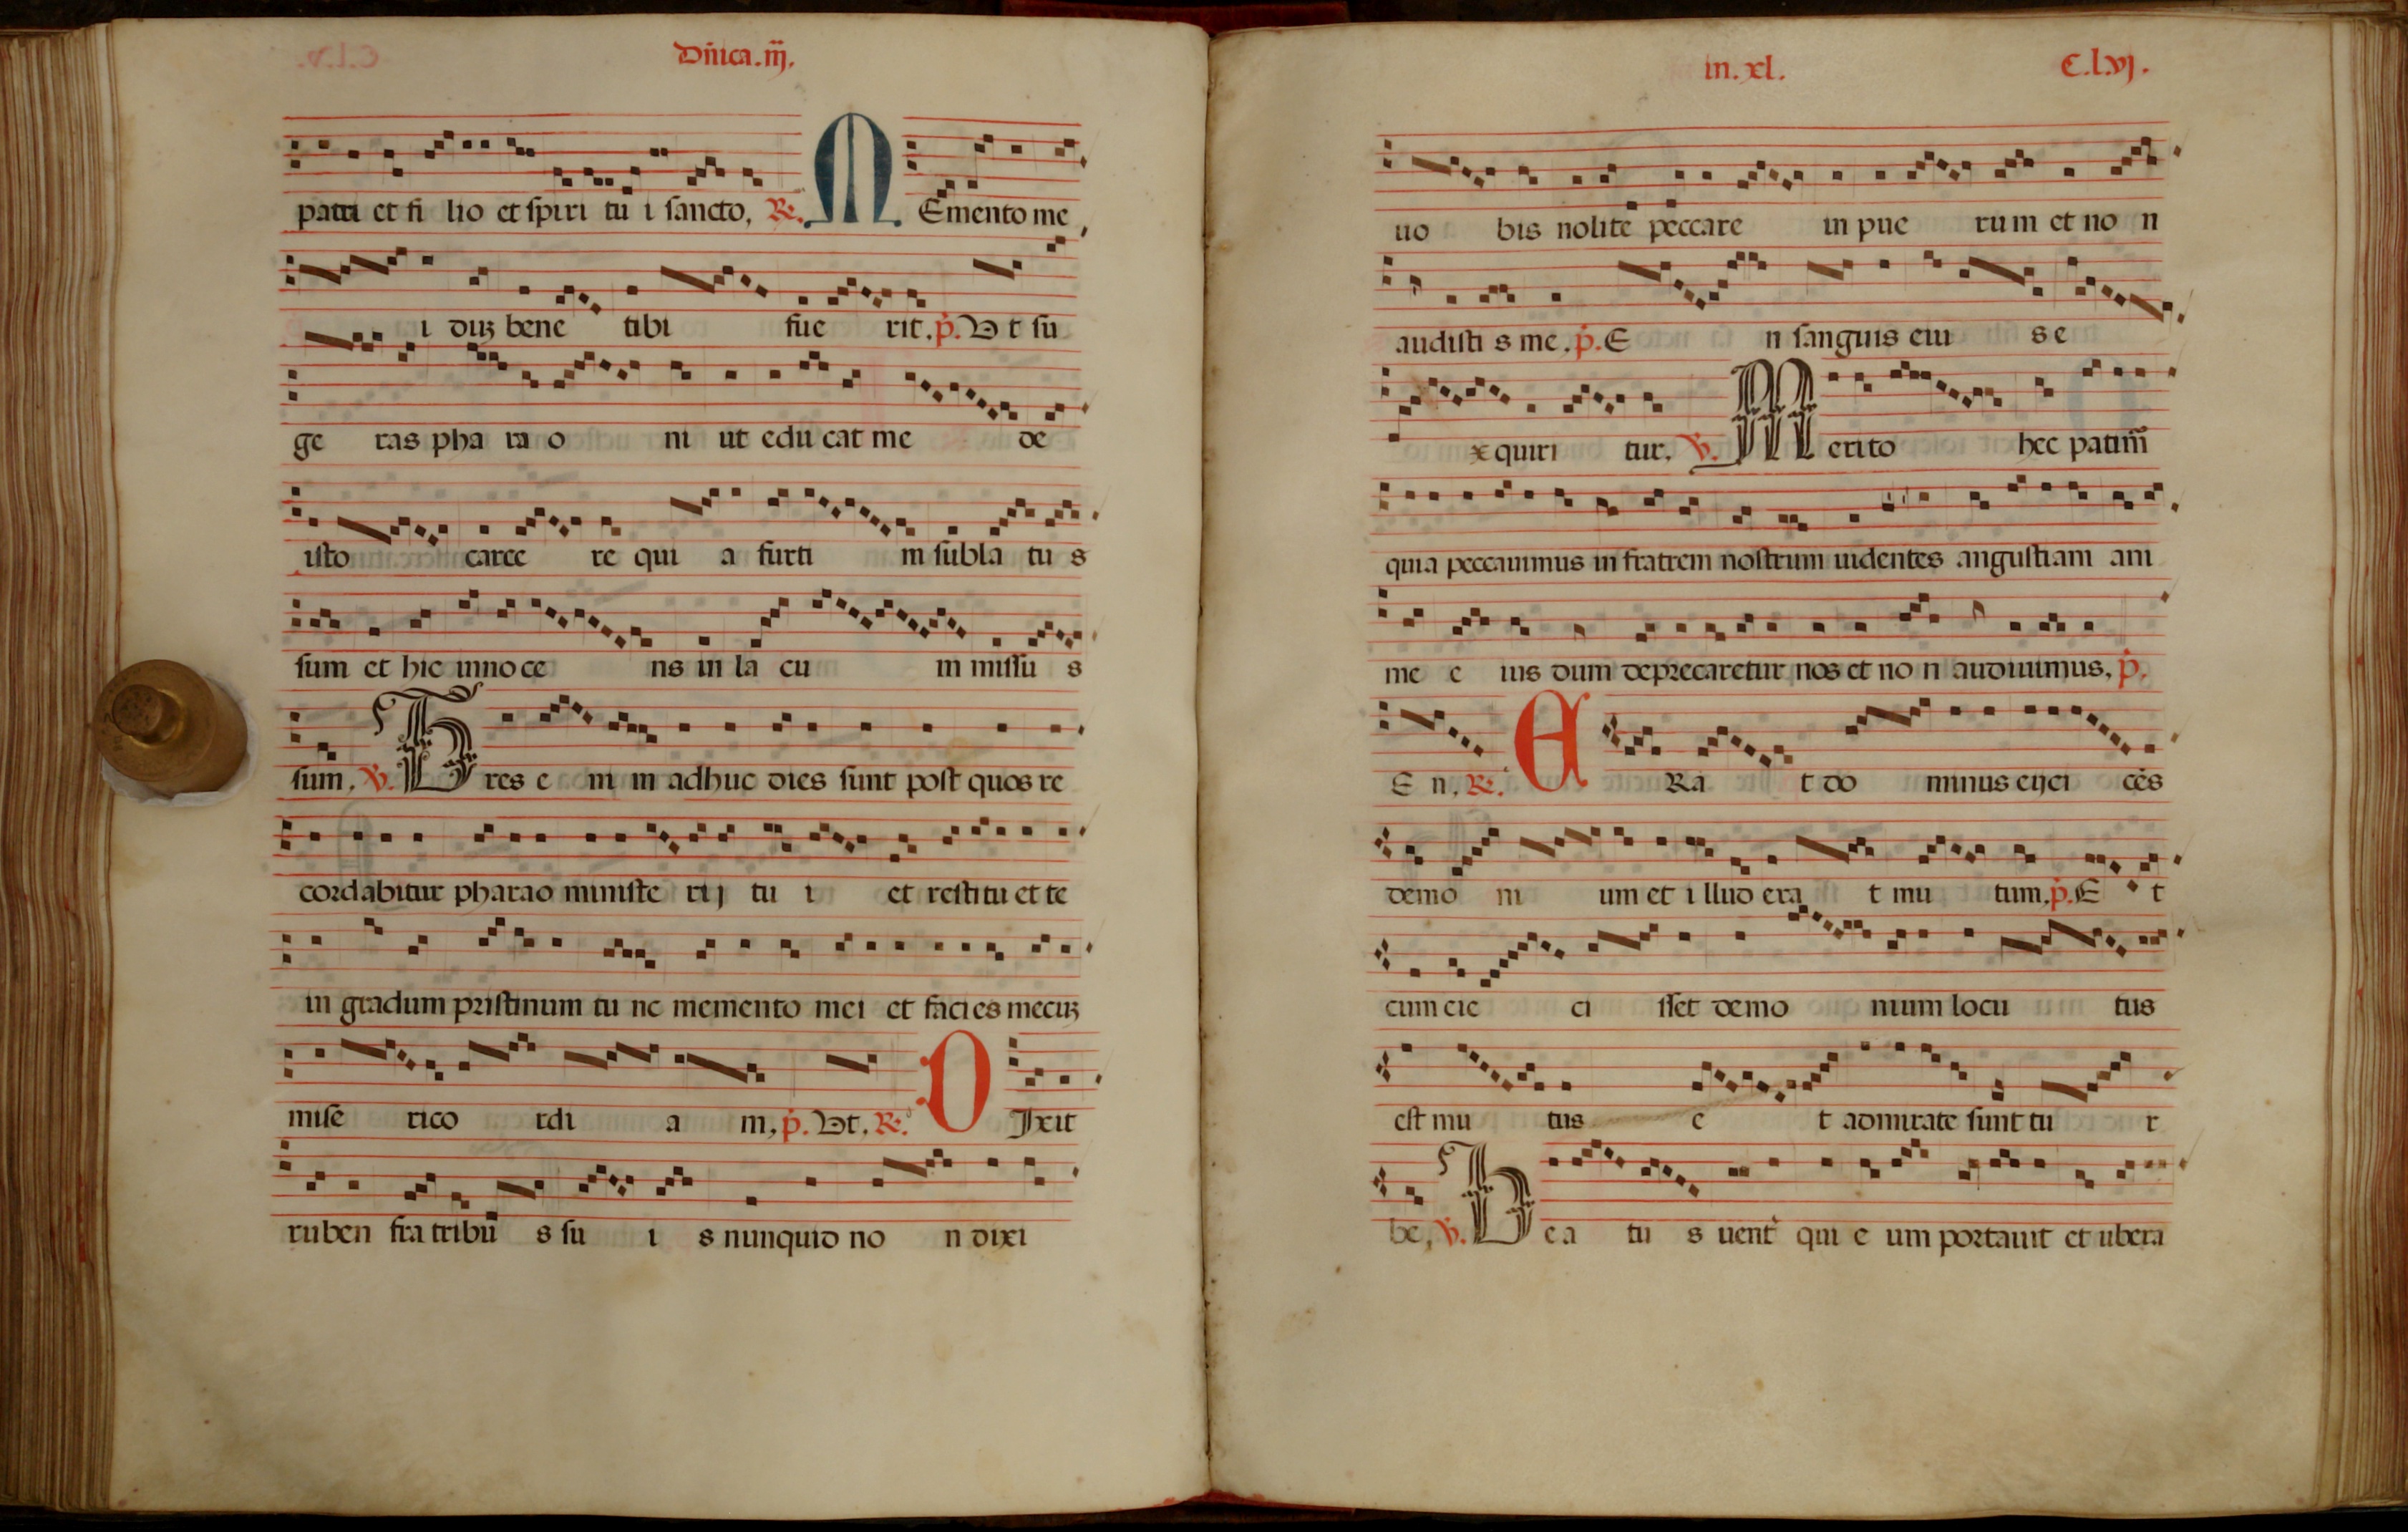 Dñica.iij.
patri et fi lio et spiri tu i sancto, R. M Emento me
i duz bene tibi fue rit. p. Ut su
ge ras pha ra o ni ut edu cat me de
isto carce re qui a furti m subla tu s
sum et hic inno ce ns in la cu m missu s
sum, V. Tres e ni m adhuc dies sunt post quos re
cordabitur pharao ministe rij tu i et restitu et te
in gradum pristinum tu nc memento mei et faci es mecuz
mise rico rdi a m, p. Ut. R. D Ixit
ruben fra tribu s su i s nunquid no n dixi
in.xl. C.l.vj.
uo bis nolite peccare in pue rum et no n
audisti s me. p. E n sanguis eiu s e
x quiri tur, V. Merito hec patim̃
quia peccauimus in fratrem nostrum uidentes angustiam ani
me e ius dum deprecaretur nos et no n audiuimus, p.
E n. R. E Ra t do minus eijci ẽs
demo ni um et i llud era t mu tum. p. E t
cum eie ci sset demo nium locu tus
est mu tus e t admirate sunt tu r
be, V. Bea tu s uent̃ qui e um portauit et ubera